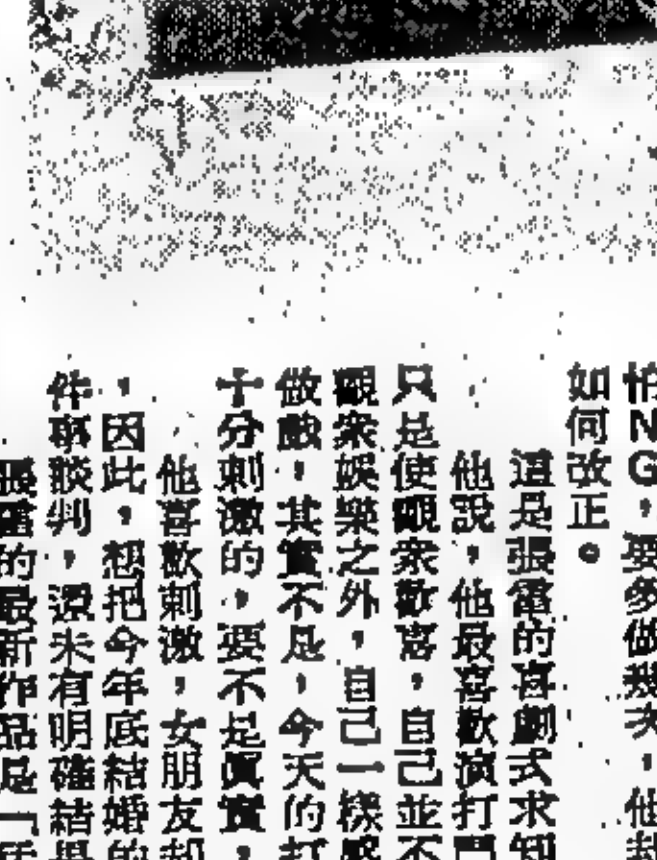 怕NG，要多做幾次，他
如何改正。
這是張雷的喜劇式求知
他說，他最喜歡演打鬥
只是使觀衆歡喜，自己並不
觀衆娛樂之外，自己一樣感
做戲，其實不是，今天的打
十分刺激的，要不是眞實，
他喜歡刺激，女朋友却
，因此，想把今年底結婚的
件事談判，還未有明確結果
張雷的最新作品是「